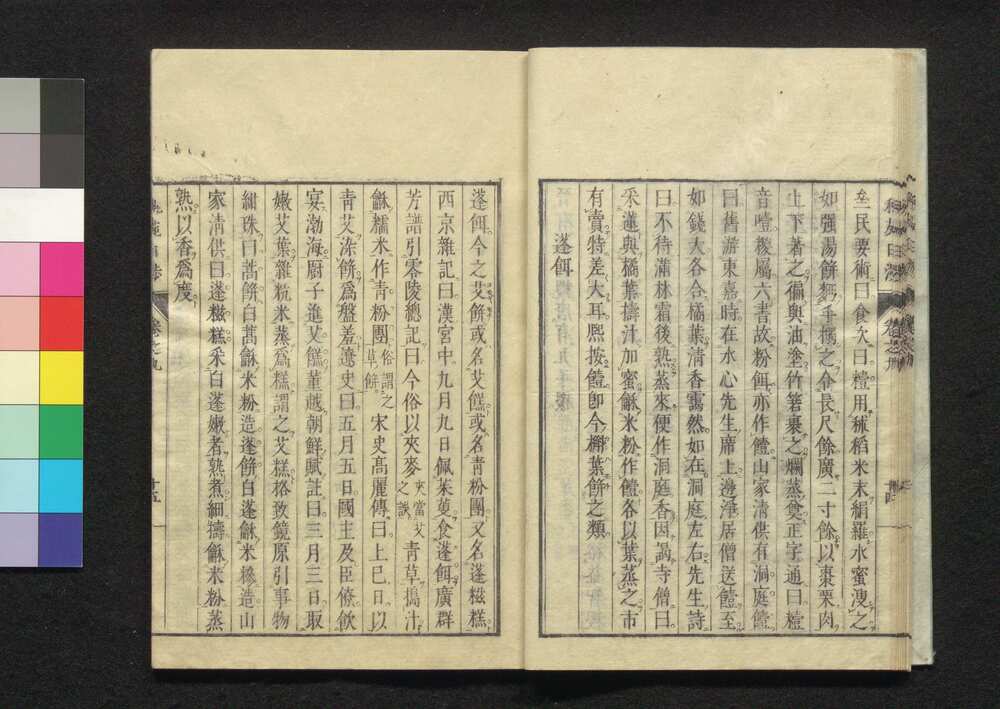 民要術曰食次曰𥻦用秫稻米末絹羅水蜜溲之
如强湯餅麪手搦之令長尺餘廣二寸餘以棗栗肉
上下著之徧與油塗竹箬裹之爛蒸食正字通曰𥻦
音噎糉屬六書故粉餌亦作饐山家清供有洞庭饐
曰舊游東嘉時在水心先生席上邊淨居僧送饐至
如錢大各合橘葉清香靄然如在洞庭左右先生詩
曰不待滿林霜後熟蒸來便作洞庭香因謁寺僧曰
采蓮與橘葉擣汁加蜜龢米粉作饐各以葉蒸之市
有賣特差大耳熙按饐卽今槲葉餅之類
蓬餌
蓬餌今之艾餅或名艾餻或名青粉團又名蓬糍糕
西京雜記曰漢宮中九月九日佩茱萸食蓬餌廣群
芳譜引零陵總記曰今俗以夾麥夾當艾之誤青草搗汁
龢糯米作青粉團俗謂之草餅宋史高麗傳曰上巳日以
青艾染餅爲盤羞遼史曰五月五日國主及臣僚飲
宴渤海廚子進艾餻董越朝鮮賦註曰三月三日取
嫩艾葉雜秔米蒸爲糕謂之艾糕格致鏡原引事物
紺珠曰蒿餅白蒿龢米粉造蓬餅白蓬龢米糝造山
家清供曰蓬糍糕采白蓬嫩者熟煮細擣龢米粉蒸
熟以香爲度
十五